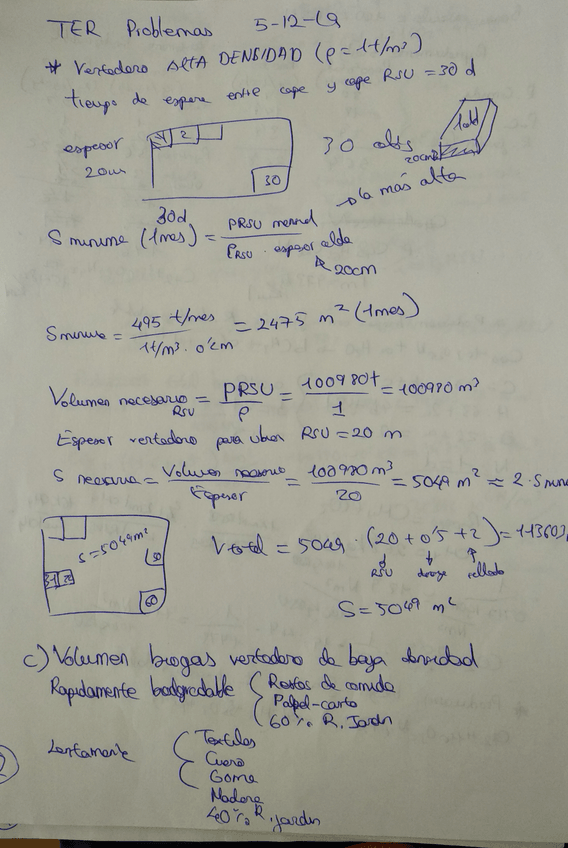 TER Problemas 5-12-19
* Vertedero ALTA DENSIDAD (ρ = 1t/m³)
tiempo de espera entre capa y capa RSU = 30 d
espesor 20cm
1 2
30
30 alds
1ald
20cm
la más alta
30d
S minima (1mes) = PRSU mensual / ρRSU · espesor alda
20cm
S minima = 495 t/mes / 1t/m³ · 0'2m = 2475 m² (1mes)
Volumen necesario RSU = PRSU / ρ = 100980t / 1 = 100980 m³
Espesor vertedero para ubicar RSU = 20 m
S necesaria = Volumen necesario / Espesor = 100980 m³ / 20 = 5049 m² ≈ 2 · S min
S = 5049m²
31
30
60
V total = 5049 · (20 + 0'5 + 2) = 113603,
RSU sellado
S = 5049 m²
c) Volumen biogas vertedero de baja densidad
Rapidamente biodegradable { Restos de comida
Papel-carto
60% R. Jardin
Lentamente { Textiles
Cuero
Goma
Madera
40% R. jardin